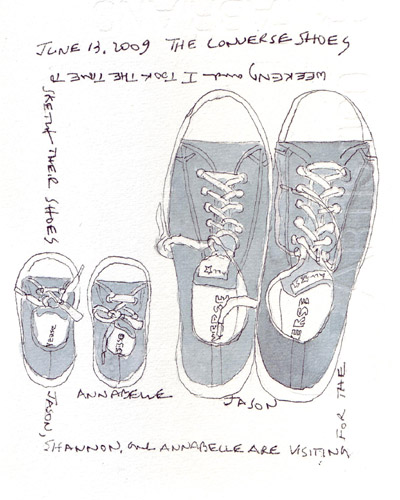 JUNE 13, 2009 THE CONVERSE SHOES
JASON,
SHANNON, and ANNABELLE ARE VISITING
FOR THE
WEEKEND and I TOOK THE TIME TO
SKETCH THEIR SHOES
ANNABELLE
JASON
ALL ☆
ERSE
ERSE